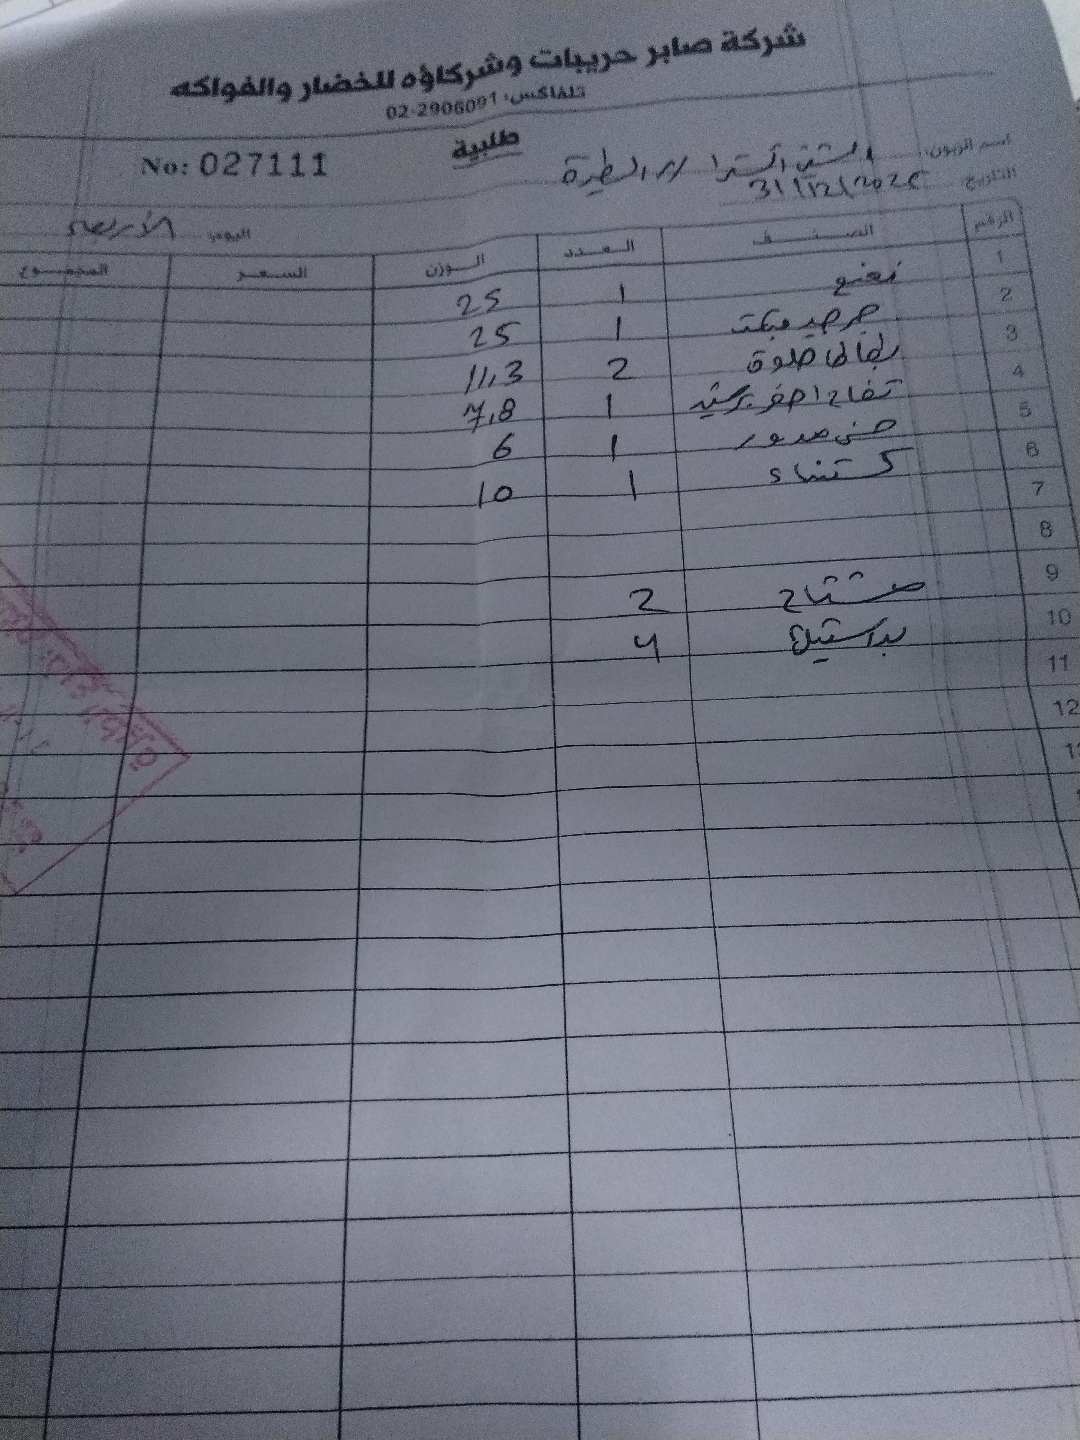 شركة صابر حريبات وشركاؤه للخضار والفواكه
تلفاكس: 02-2906091
طلبية
No: 027111
اسم الزبون:
التاريخ 31/12/2025
اليوم الأربعاء
الرقم الصنف العدد الوزن السعر المجموع
1 نعنع 1 25
2 جرجير مبكت 1 25
3 بطاطا حلوة 2 11,3
4 تفاح اصفر 1 7,8
5 مدور 1 6
6 كستناء 1 10
7
8
9 مشتاح 2
10 بلاستيك 4
11
12